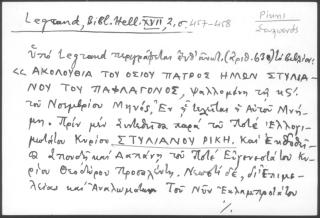 Legrand, Bibl. Hell. XVII, 2, σ. 457-458
Ρίκης
Στυλιανός
Ὑπὸ Legrand περιγράφεται ἐνθ' ἀνωτ. (ἀριθ. 630) τὸ βιβλίον:
« ΑΚΟΛΟΥΘΙΑ ΤΟΥ ΟΣΙΟΥ ΠΑΤΡΟΣ ΗΜΩΝ ΣΤΥΛΙΑ-
ΝΟΥ ΤΟΥ ΠΑΦΛΑΓΟΝΟΣ, ψαλλομένη τῇ κϚ'.
τοῦ Νοεμβρίου Μηνός, Ἐν ᾗ τελεῖται ἡ Αὐτοῦ Μνή-
μη. Πρὶν μὲν Συντεθεῖσα παρὰ τοῦ Ποτὲ Ἐλλογι-
μωτάτου Κυρίου ΣΤΥΛΙΑΝΟΥ ΡΙΚΗ. Καὶ Ἐκδοθεῖ-
σα Σπουδῇ καὶ Δαπάνῃ τοῦ Ποτὲ Εὐγενεστάτου Κυ-
ρίου Θεοδώρου Προσαλέντη. Νεωστὶ δέ, δι' Ἐπιμε-
λείας καὶ Ἀναλωμάτων Τοῦ Νῦν Ἐκλαμπροτάτου
./.